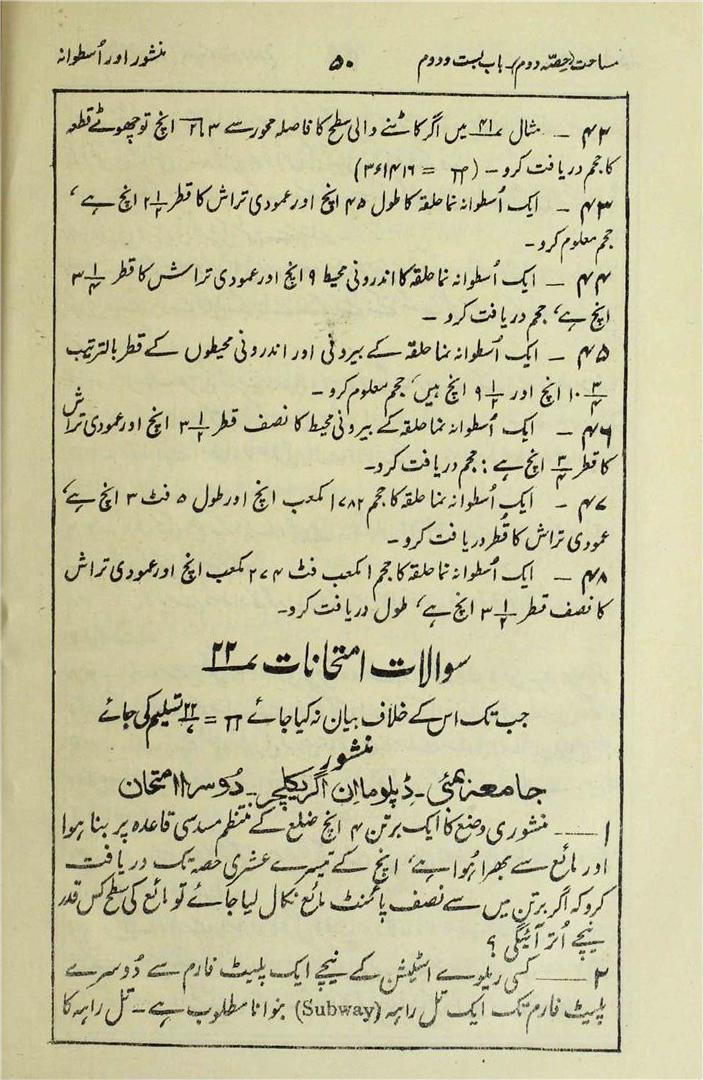 مساحت (حصّہ دوم)۔ باب بست و دوم ۵۰ منشور اور اُسطوانہ
۴۲ ــ مثال ۴۱ میں اگر کاٹنے والی سطح کا فاصلہ محور سے ۳√۲ انچ تو چھوٹے قطعہ
کا حجم دریافت کرو ۔ (π = ۳٫۱۴۱۶)
۴۳ ــ ایک اُسطوانہ نما حلقہ کا طول ۴۵ انچ اور عمودی تراش کا قطر ۲ ۱/۲ انچ ہے ،
حجم معلوم کرو ۔
۴۴ ــ ایک اُسطوانہ نما حلقہ کا اندرونی محیط ۹ انچ اور عمودی تراش کا قطر ۳ ۱/۴
انچ ہے ، حجم دریافت کرو ۔
۴۵ ــ ایک اُسطوانہ نما حلقہ کے بیرونی اور اندرونی محیطوں کے قطر بالترتیب
۱۰ ۳/۴ انچ اور ۹ ۱/۲ انچ ہیں ، حجم معلوم کرو ۔
۴۶ ــ ایک اُسطوانہ نما حلقہ کے بیرونی محیط کا نصف قطر ۳ ۱/۲ انچ اور عمودی تراش
کا قطر ۳/۴ انچ ہے : حجم دریافت کرو ۔
۴۷ ــ ایک اُسطوانہ نما حلقہ کا حجم ۱۷۸۲ مکعب انچ اور طول ۵ فٹ ۳ انچ ہے ،
عمودی تراش کا قُطر دریافت کرو ۔
۴۸ ــ ایک اُسطوانہ نما حلقہ کا حجم ۱ مکعب فٹ ۲۷۴ مکعب انچ اور عمودی تراش
کا نصف قطر ۳ ۱/۲ انچ ہے ، طول دریافت کرو ۔
سوالات امتحانات ۲۲
جب تک اس کے خلاف بیان نہ کیا جائے π = ۲۲/۷ تسلیم کی جائے
منشور
جامعہ بمبئی ۔ ڈپلوما ان اگریکلچر ۔ دُوسرا امتحان
۱ ــــ منشوری وضع کا ایک برتن ۴ انچ ضلع کے منتظم مسدسی قاعدہ پر بنا ہوا
اور مائع سے بھرا ہُوا ہے ، انچ کے تیسرے عشری حصہ تک دریافت
کرو کہ اگر برتن میں سے نصف پائمنٹ مائع نکال لیا جائے تو مائع کی سطح کس قدر
نیچے اُتر آئیگی ؟
۲ ــــ کسی ریلوے اسٹیشن کے نیچے ایک پلیٹ فارم سے دُوسرے
پلیٹ فارم تک ایک تل راہہ (Subway) بنوانا مطلوب ہے ۔ تل راہہ کا